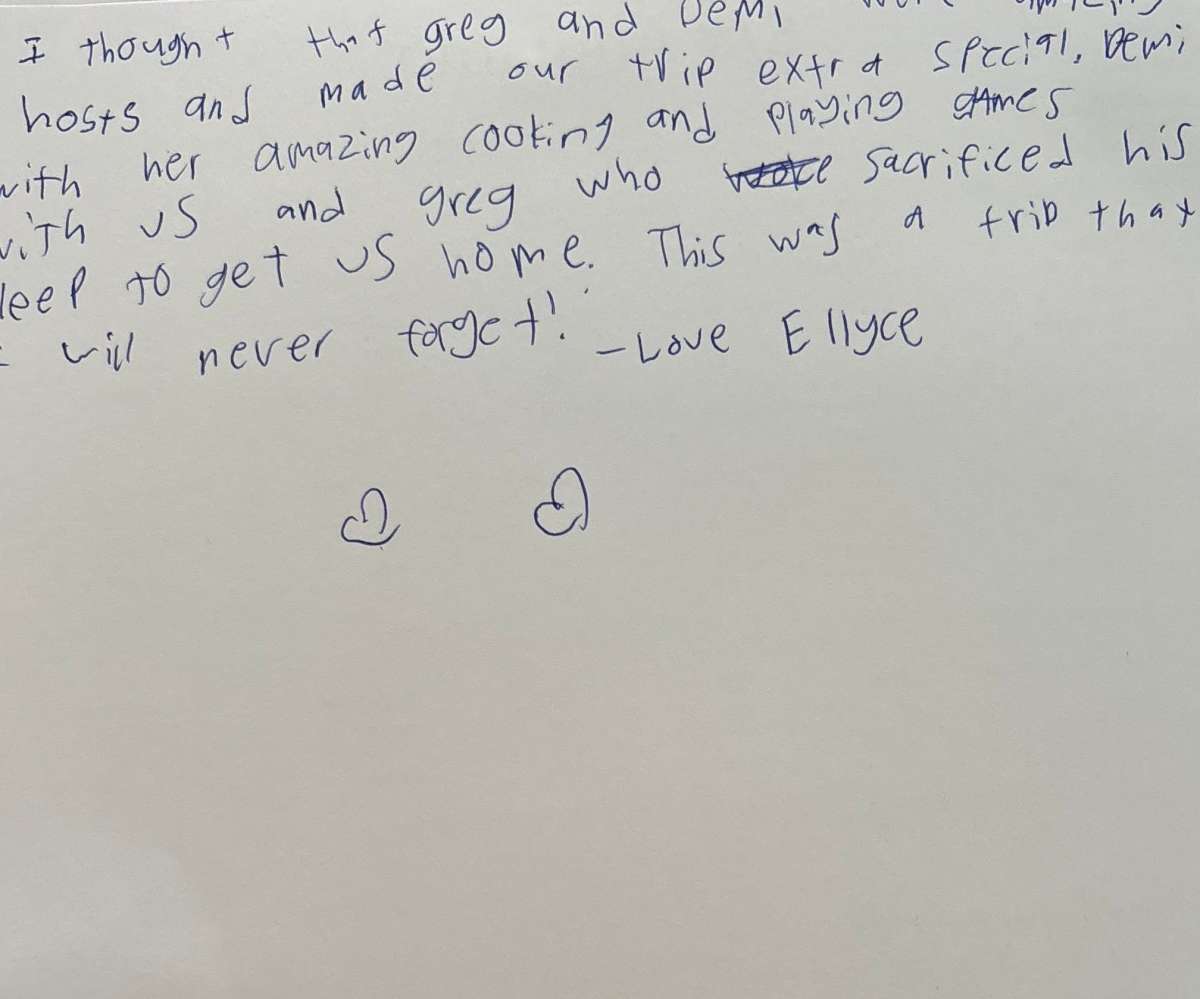 I thought that greg and Demi were amazing
hosts and made our trip extra special. Demi
with her amazing cooking and playing games
with us and greg who sacrificed his
leep to get us home. This was a trip that
will never forget! -Love Ellyce